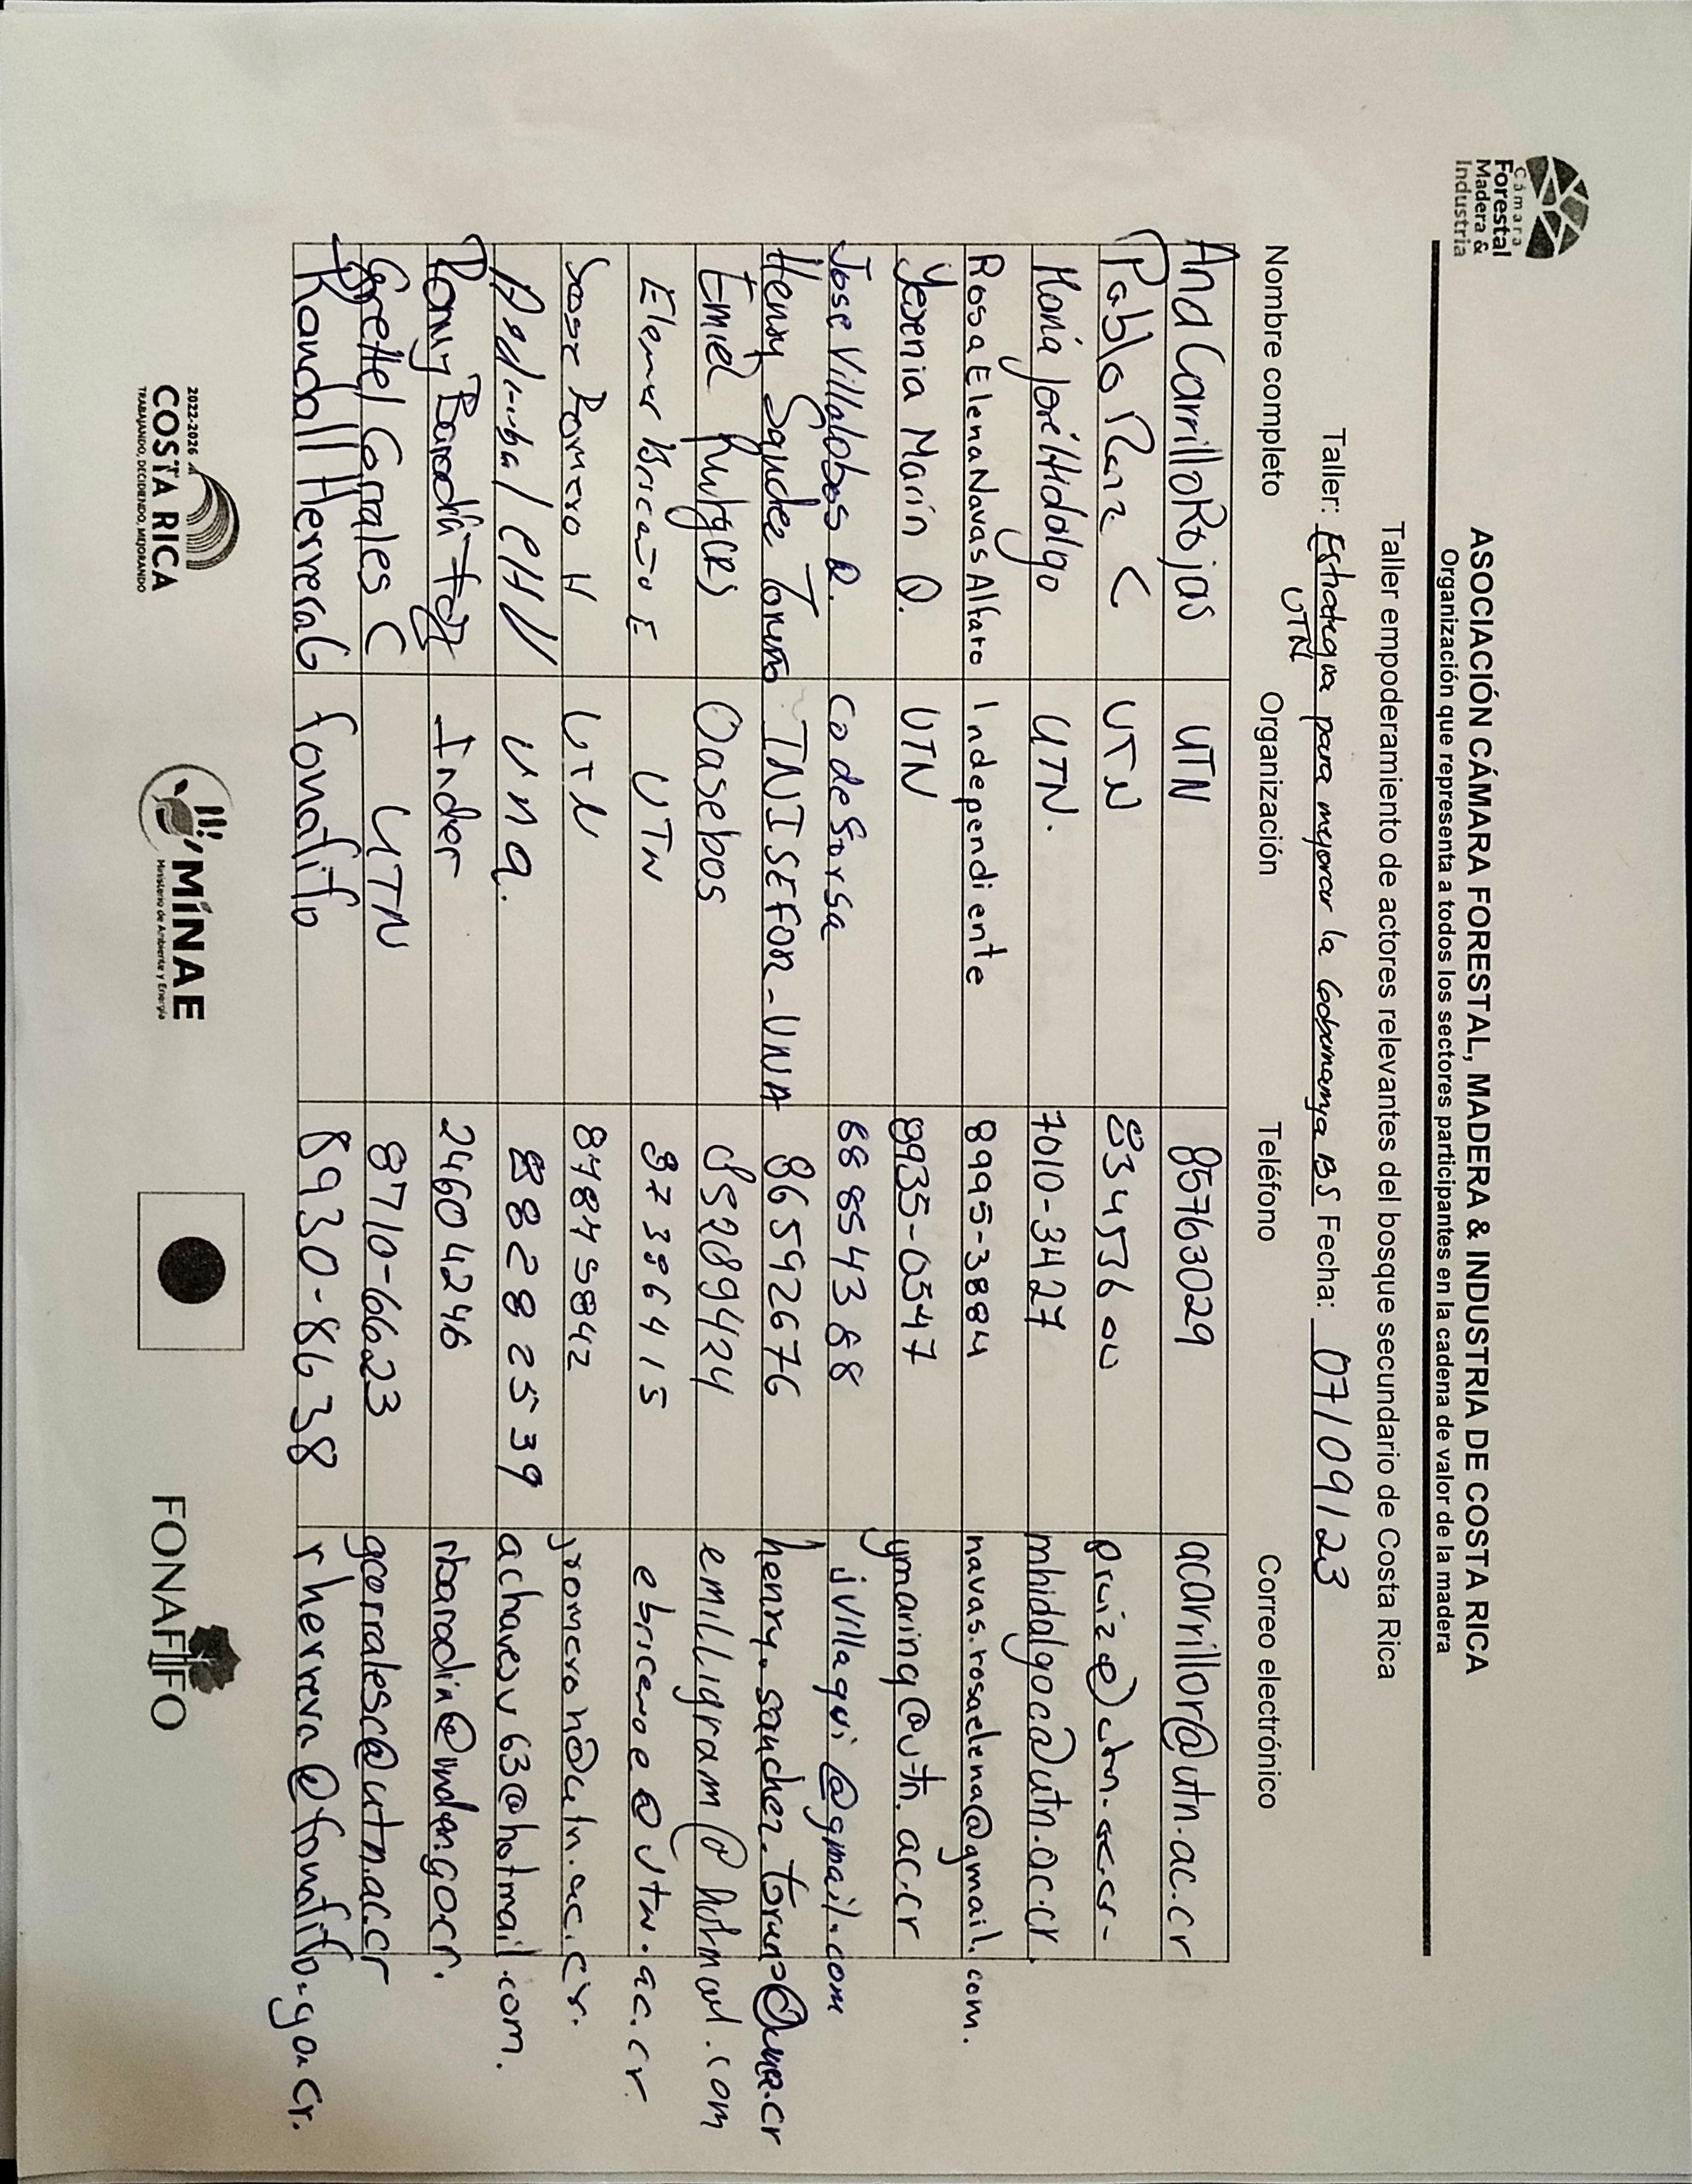 Cámara
Forestal
Madera &
Industria
ASOCIACIÓN CÁMARA FORESTAL, MADERA & INDUSTRIA DE COSTA RICA
Organización que representa a todos los sectores participantes en la cadena de valor de la madera
Taller empoderamiento de actores relevantes del bosque secundario de Costa Rica
Taller: Estrategia para mejorar la Gobernanza BS Fecha: 07/09/23
UTN
Nombre completo Organización Teléfono Correo electrónico
Ana Carrillo Rojas UTN 85763029 acarrillor@utn.ac.cr
Pablo C UTN 83453600 pruiz@utn.ac.cr-
María José Hidalgo UTN. 7010-3427 mhidalgoc@utn.ac.cr.
Rosa Elena Navas Alfaro Independiente 8995-3884 navas.rosaelena@gmail.com.
Yesenia Marín Q. UTN 8935-0547 ymaring@utn.ac.cr
Jose Villalobos Q. Codeforsa 88854388 jvillaqui@gmail.com
Henry Toruño INISEFOR-UNA 86592676
Emiel Rutgers Oasebos 85289424 emilligram@hotmail.com
Elemer Briceño E UTN 87396415 ebricenoe@utn.ac.cr.
Jose Romero H UTN 84845842 jromeroh@utn.ac.cr.
una. 88282539 achavesv63@hotmail.com.
Rony Inder 24604246 rbaradin@inder.go.cr.
Grettel Corrales C UTN 8710-6623 gcorralesc@utn.ac.cr
Randall Herrera G fonafifo 8930-8638 rherrera@fonafifo.go.cr.
2022-2026
COSTA RICA
TRABAJANDO, DECIDIENDO, MEJORANDO
MINAE
Ministerio de Ambiente y Energía
FONAFIFO